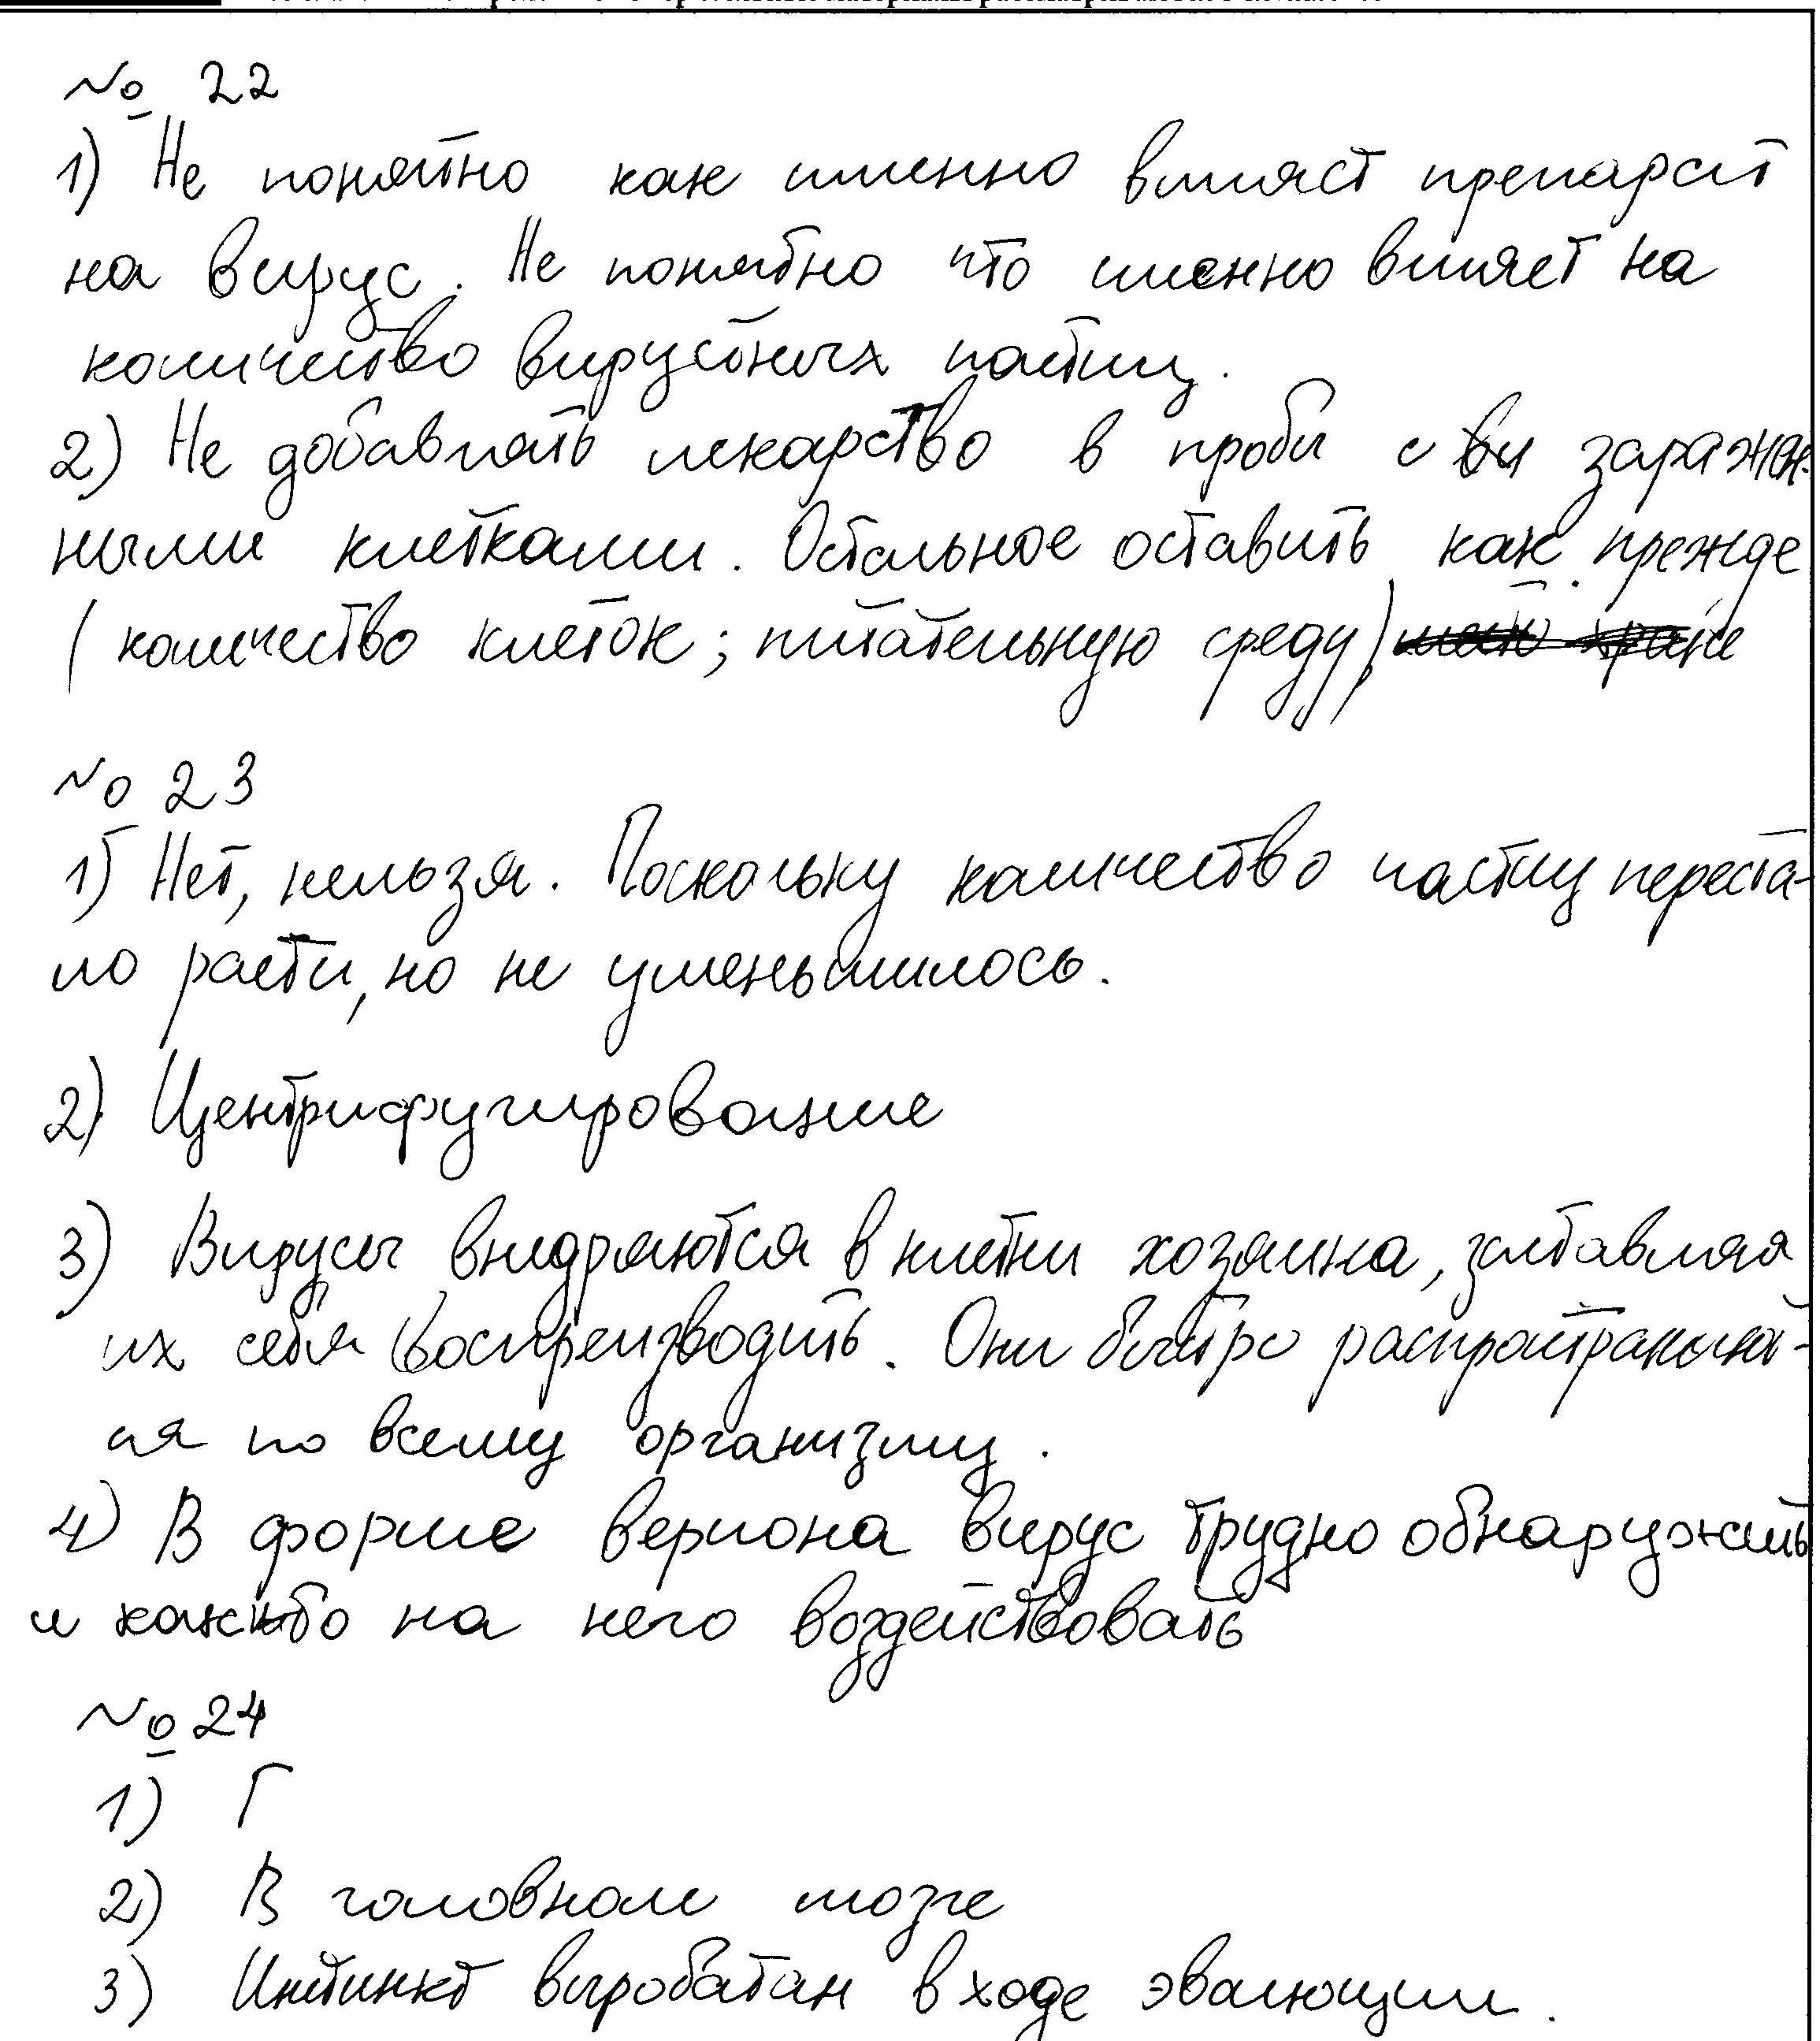 № 22
1) Не понятно как именно влияет препарат
на вирус. Не понятно что именно влияет на
количество вирусных частиц.
2) Не добавлять лекарство в пробы с заражен-
ными клетками. Остальное оставить как прежде
(количество клеток; питательную среду)
№ 23
1) Нет, нельзя. Поскольку количество частиц переста-
ло расти, но не уменьшилось.
2) Центрифугирование
3) Вирусы внедряются в клетки хозяина, заставляя
их себя воспреизводить. Они быстро распространяют-
ся по всему организму.
4) В форме вериона вирус трудно обнаружить
и как-то на него воздействовать
№ 24
1) Г
2) В головном мозге
3) Инстинкт выробатан в ходе эвалюции.